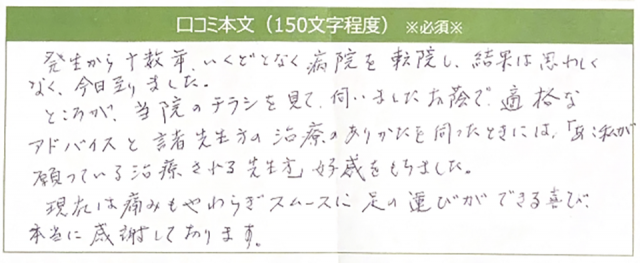 口コミ本文（150文字程度）※必須※
発生から十数年、いくどとなく病院を転院し、結果は思わしく
なく、今日至りました。
ところが、当院のチラシを見て、伺いましたお蔭で、適格な
アドバイスと諸先生方の治療のありかたを伺ったときには、「あゝ私が
願っている治療される先生方」好感をもちました。
現在は痛みもやわらぎスムースに足の運びができる喜び、
本当に感謝しております。